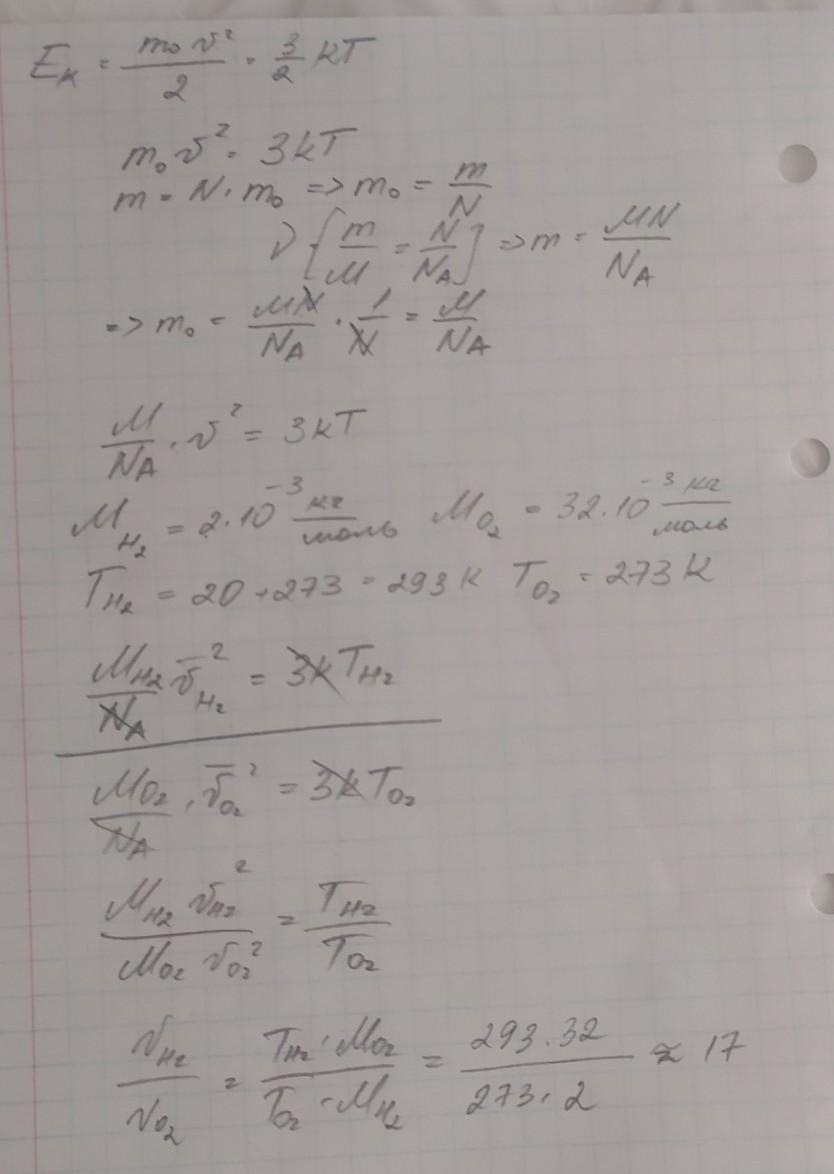 Eк = m₀v²/2 = 3/2 kT
m₀v² = 3kT
m = N·m₀ => m₀ = m/N
ν [m/M = N/N_A] => m = MN/N_A
=> m₀ = MN/N_A · 1/N = M/N_A
M/N_A · v² = 3kT
M_H₂ = 2·10⁻³ кг/моль M_O₂ = 32·10⁻³ кг/моль
T_H₂ = 20+273 = 293K T_O₂ = 273K
M_H₂/N_A v̄²_H₂ = 3kT_H₂
M_O₂/N_A · v̄_O₂² = 3kT_O₂
M_H₂ v_H₂²/M_O₂ v_O₂² = T_H₂/T_O₂
v_H₂/v_O₂ = T_H₂·M_O₂/T_O₂·M_H₂ = 293·32/273·2 ≈ 17